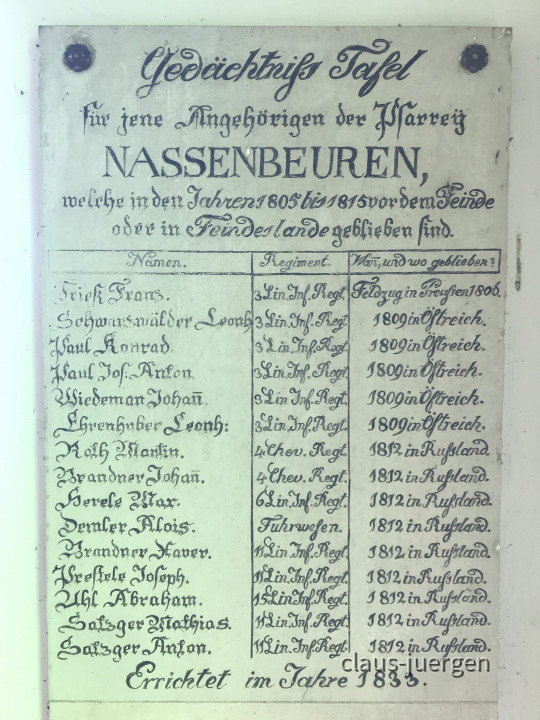 Gedächtniſs Tafel
für jene Angehörigen der Pfarreÿ
NASSENBEUREN,
welche in den Jahren 1805 bis 1815 vor dem Feinde
oder in Feindeslande geblieben ſind.
Namen. Regiment. Wan̄, und wo geblieben?
Frieß Franz. 3 Lin. Inf. Regt. Feldzug in Preuſſen 1806.
Schwarzwälder Leonh 3 Lin. Inf. Regt. 1809 in Öſtreich.
Paul Konrad. 3 Lin. Inf. Regt. 1809 in Öſtreich.
Paul Joſ. Anton. 3 Lin. Inf. Regt. 1809 in Öſtreich.
Wiedeman Johan̄. 3 Lin. Inf. Regt. 1809 in Öſtreich.
Ehrenhuber Leonh: 3 Lin. Inf. Regt. 1809 in Öſtreich.
Roth Martin. 4 Chev. Regt. 1812 in Rußland.
Brandner Johan̄. 4 Chev. Regt. 1812 in Rußland.
Herele Max. 6 Lin. Inf. Regt. 1812 in Rußland.
Demler Alois. Fuhrweſen. 1812 in Rußland.
Brandner Xaver. 11 Lin. Inf. Regt. 1812 in Rußland.
Preſtele Joseph. 11 Lin. Inf. Regt. 1812 in Rußland.
Uhl Abraham. 15 Lin. Inf. Regt. 1812 in Rußland.
Satzger Mathias. 11 Lin. Inf. Regt. 1812 in Rußland.
Satzger Anton. 11 Lin. Inf. Regt. 1812 in Rußland.
Errichtet im Jahre 1833.
claus-juergen